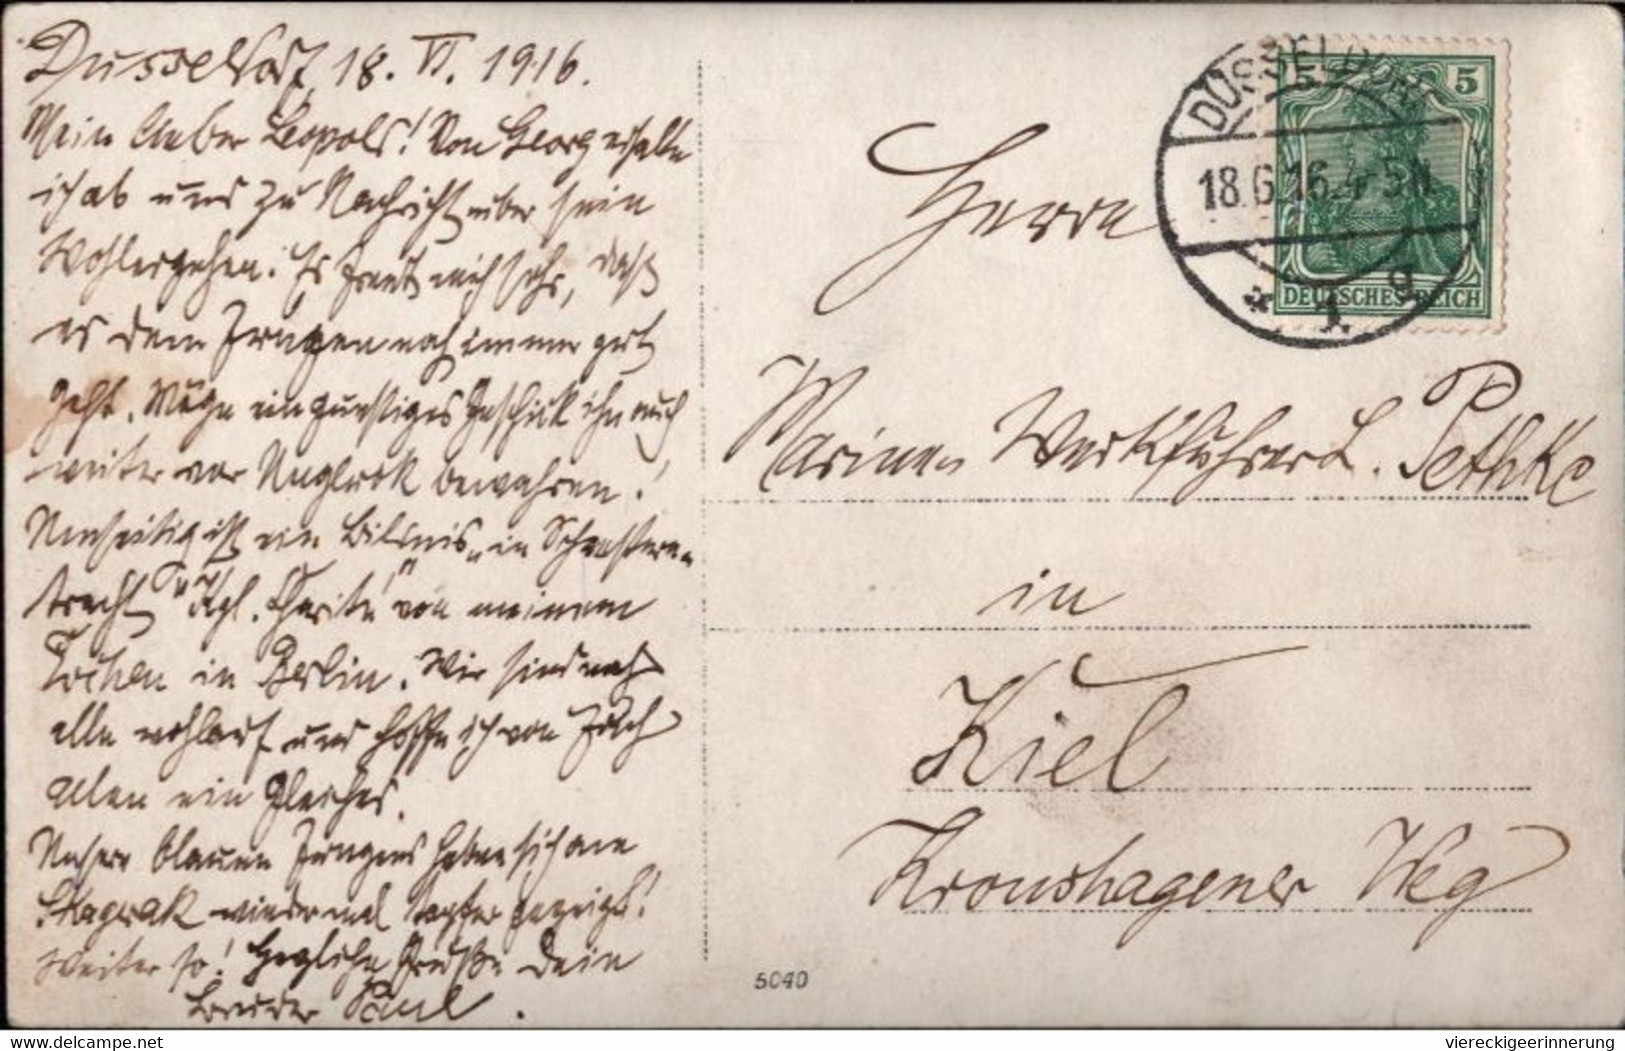 Düsseldorf, 18. VI. 1916.
Mein lieber Leopold! Von Georg erhalte
ich ab und zu Nachricht über sein
Wohlergehen. Es freut mich sehr, daß
es dem Jungen noch immer gut
geht. Möge ein günstiges Geschick ihn auch
weiter vor Unglück bewahren!
Umseitig ist ein Bildnis „in Schwestern-
tracht “ Kgl. Charité“ von meinem
in Berlin. Wir sind noch
alle wohlauf und hoffe ich von Euch
allen ein Gleiches.
Unsere blauen Jungens haben sich am
Skagerak wieder mal tapfer gezeigt!
Weiter so! Herzliche Grüße Dein
Bruder Paul.
Herrn
Marine-Werkführer L. Pethke
in
Kiel
Kronshagener Weg
DÜSSELDORF
18.6.16. 4-5 N.
* 1. g
5 5
DEUTSCHES REICH
5040
delcampe.net
viereckigeerinnerung